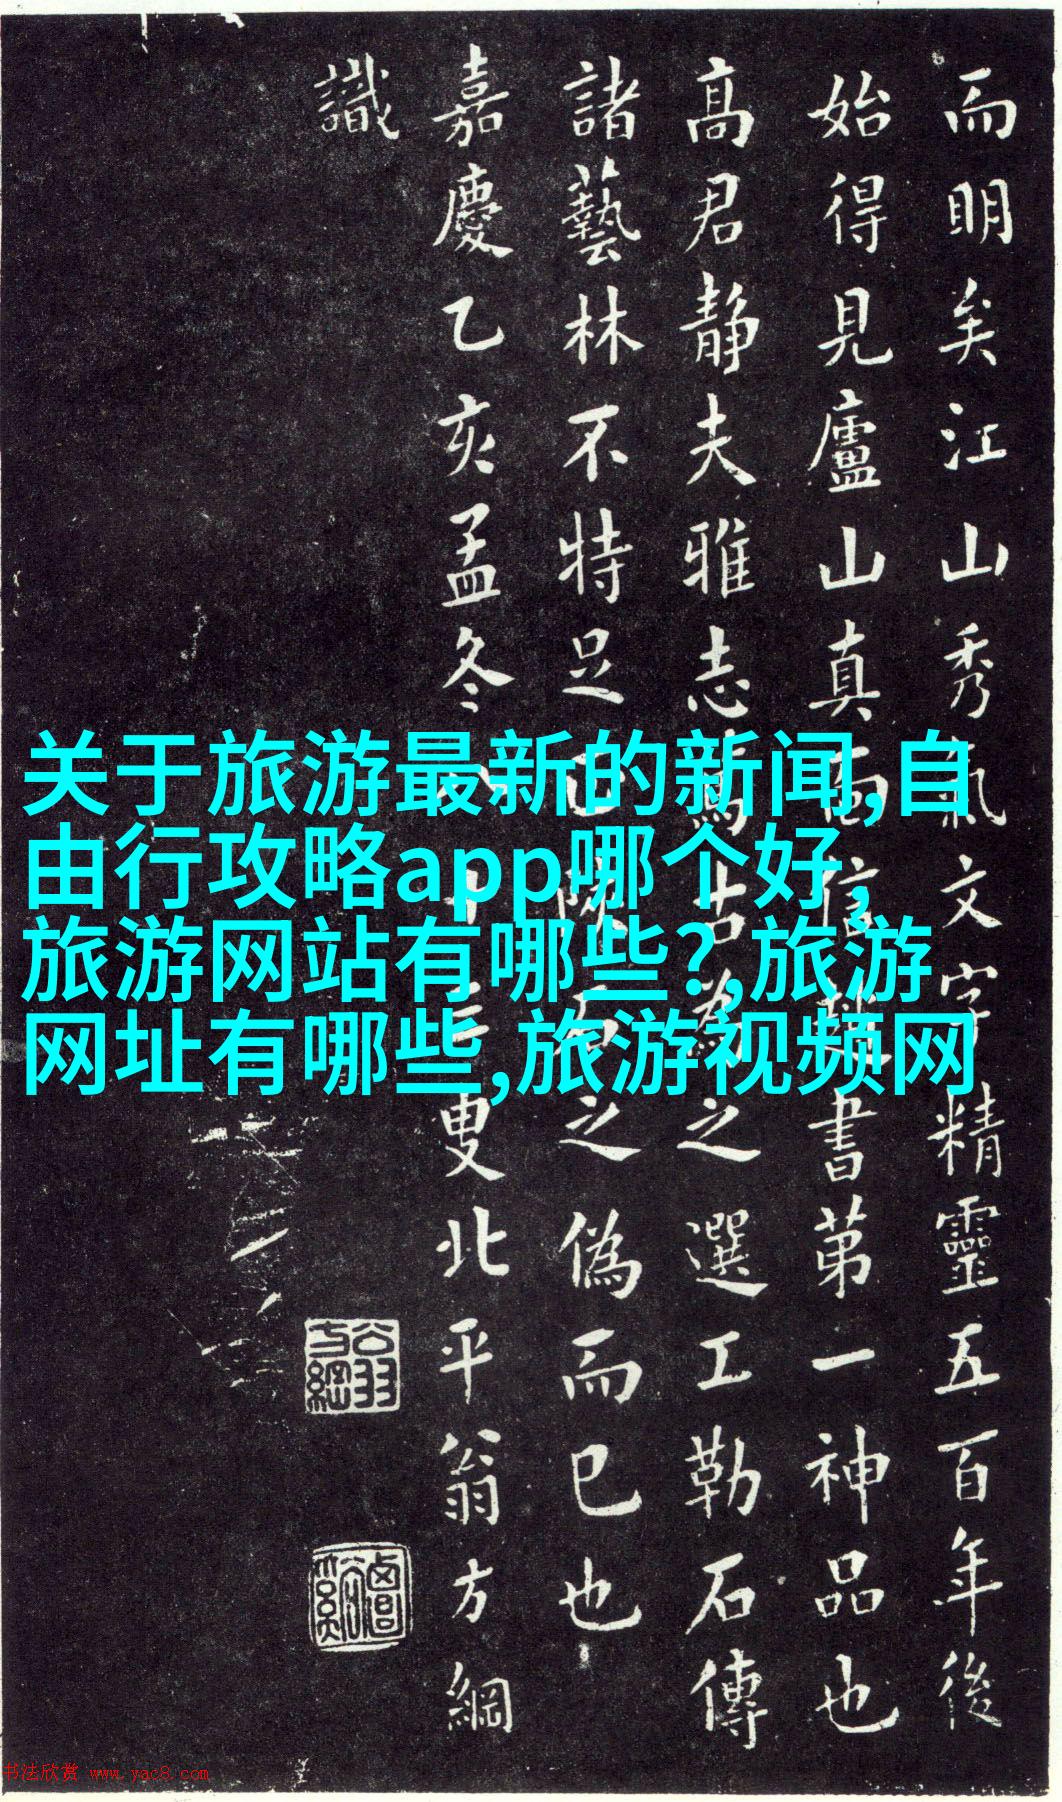 而明矣江山秀氣文字精靈五百年後
始得見廬山真面信楷書第一神品也
高君静夫雅志嵩古為之選工勒石傳
諸藝林不特足正之偽而已也
嘉慶乙亥孟冬八十三叟北平翁方綱
識
翁方綱
关于旅游最新的新闻,自
由行攻略app哪个好,
旅游网站有哪些?,旅游
网址有哪些,旅游视频网
书法欣赏 www.yac8.com